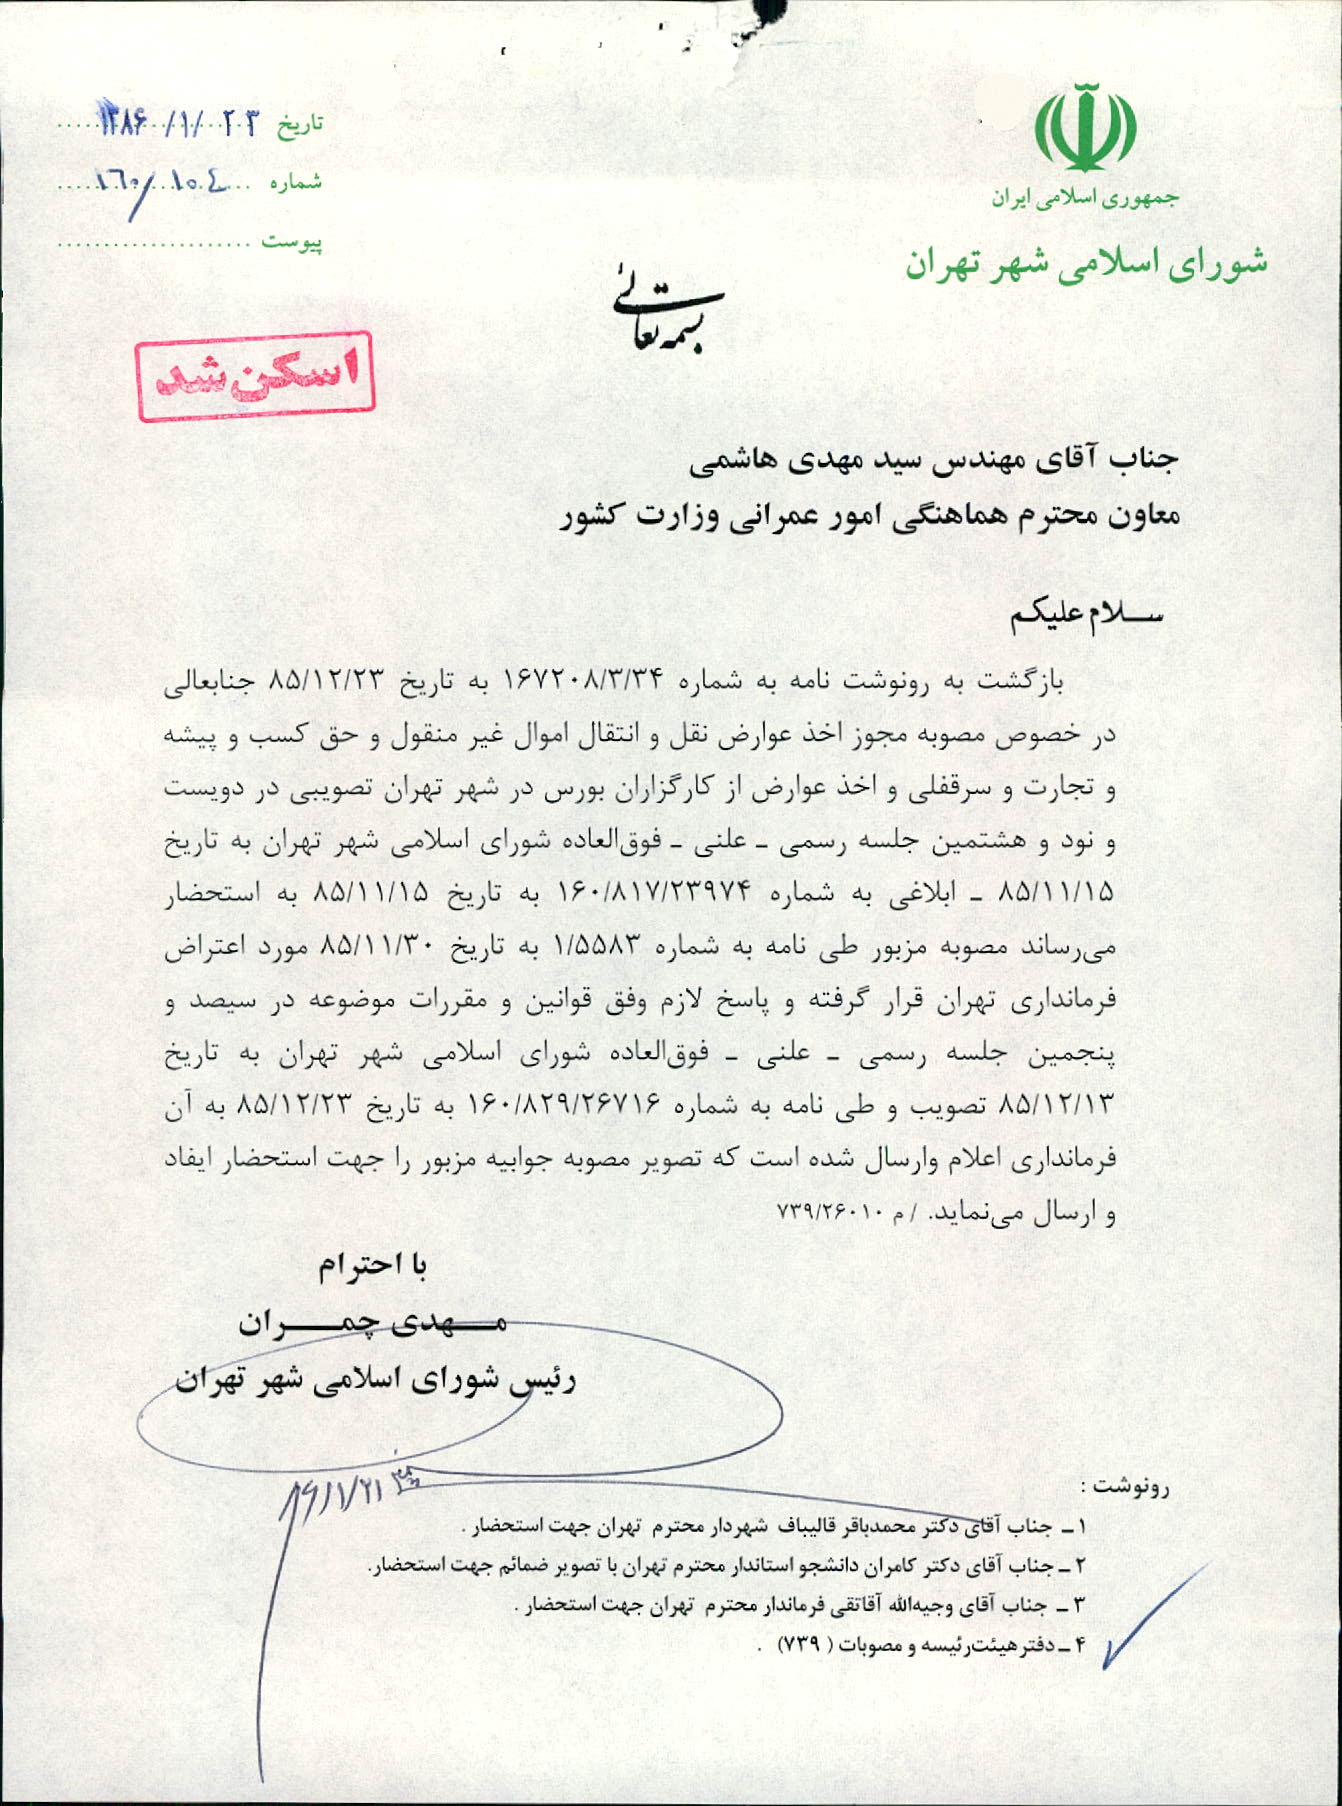 جمهوری اسلامی ایران
شورای اسلامی شهر تهران
تاریخ ۱۳۸۶/۱/۲۳
شماره ۱۶۰/۱۰۴
پیوست
بسمه تعالی
اسکن شد
جناب آقای مهندس سید مهدی هاشمی
معاون محترم هماهنگی امور عمرانی وزارت کشور
سلام علیکم
بازگشت به رونوشت نامه به شماره ۱۶۷۲۰۸/۳/۳۴ به تاریخ ۸۵/۱۲/۲۳ جنابعالی
در خصوص مصوبه مجوز اخذ عوارض نقل و انتقال اموال غیر منقول و حق کسب و پیشه
و تجارت و سرقفلی و اخذ عوارض از کارگزاران بورس در شهر تهران تصویبی در دویست
و نود و هشتمین جلسه رسمی ـ علنی ـ فوق‌العاده شورای اسلامی شهر تهران به تاریخ
۸۵/۱۱/۱۵ ـ ابلاغی به شماره ۱۶۰/۸۱۷/۲۳۹۷۴ به تاریخ ۸۵/۱۱/۱۵ به استحضار
می‌رساند مصوبه مزبور طی نامه به شماره ۱/۵۵۸۳ به تاریخ ۸۵/۱۱/۳۰ مورد اعتراض
فرمانداری تهران قرار گرفته و پاسخ لازم وفق قوانین و مقررات موضوعه در سیصد و
پنجمین جلسه رسمی ـ علنی ـ فوق‌العاده شورای اسلامی شهر تهران به تاریخ
۸۵/۱۲/۱۳ تصویب و طی نامه به شماره ۱۶۰/۸۲۹/۲۶۷۱۶ به تاریخ ۸۵/۱۲/۲۳ به آن
فرمانداری اعلام وارسال شده است که تصویر مصوبه جوابیه مزبور را جهت استحضار ایفاد
و ارسال می‌نماید. / م ۷۳۹/۲۶۰۱۰
با احترام
مهدی چمران
رئیس شورای اسلامی شهر تهران
۸۶/۱/۲۱
رونوشت :
۱ـ جناب آقای دکتر محمدباقر قالیباف شهردار محترم تهران جهت استحضار .
۲ ـ جناب آقای دکتر کامران دانشجو استاندار محترم تهران با تصویر ضمائم جهت استحضار.
۳ ـ جناب آقای وجیه‌الله آقاتقی فرماندار محترم تهران جهت استحضار .
۴ ـ دفتر هیئت‌رئیسه و مصوبات ( ۷۳۹) .